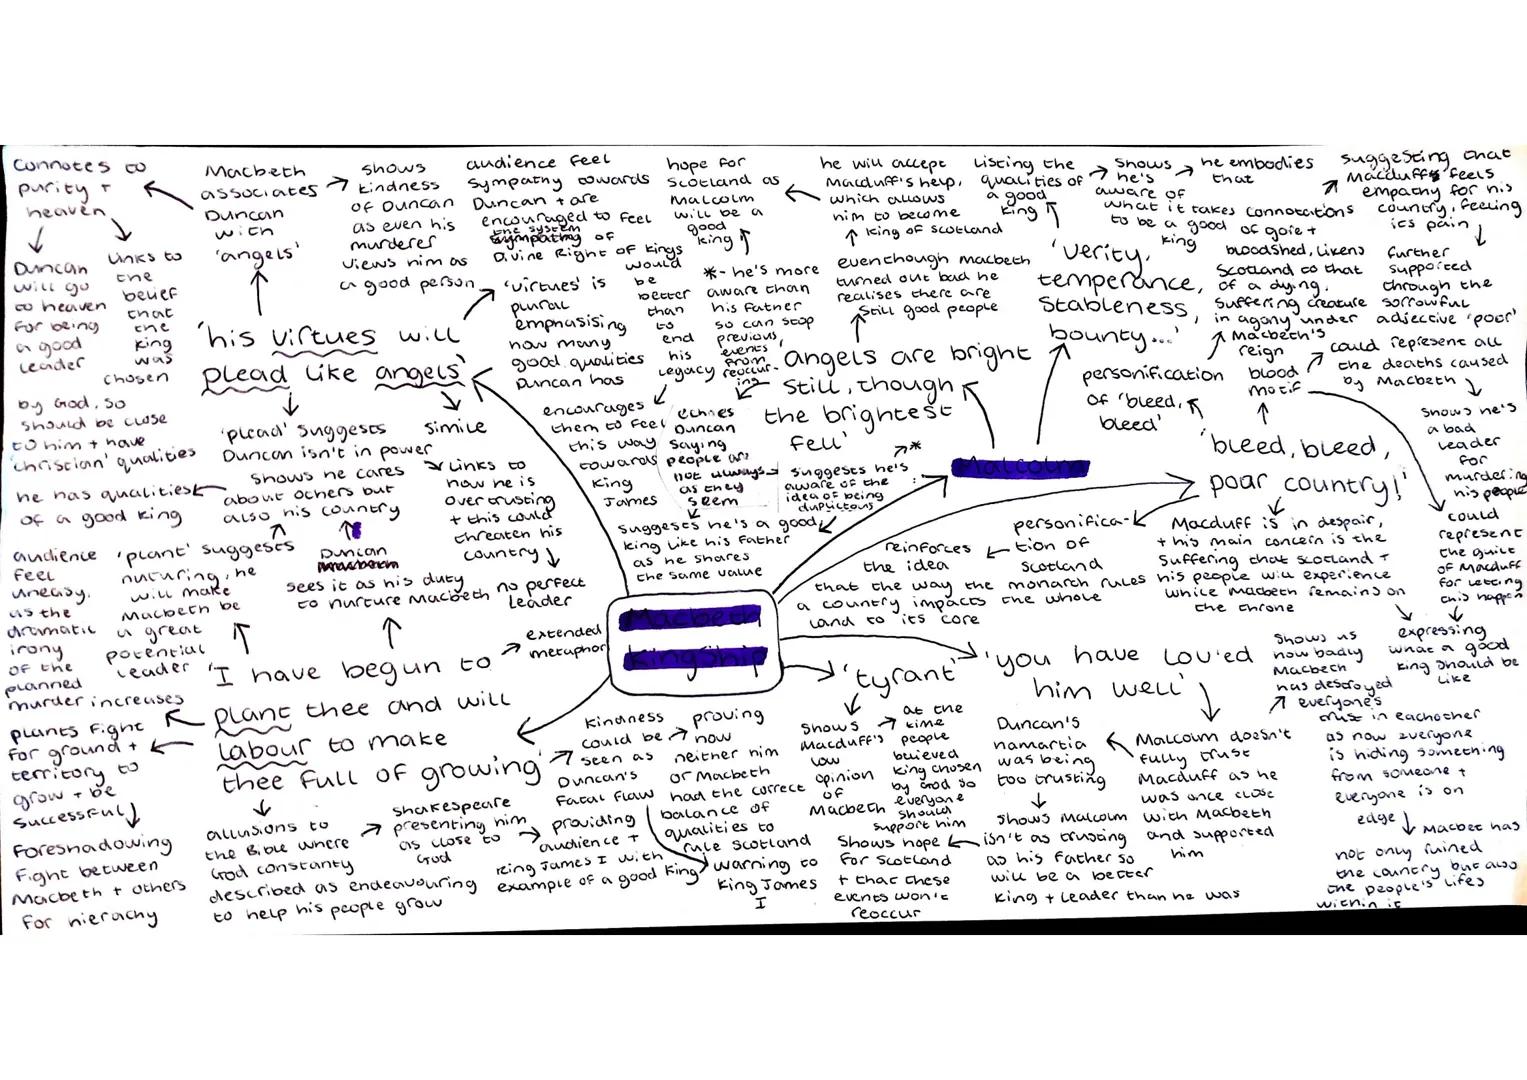 Connotes to
purity +
heaven
Duncan
will go
to heaven
for being
a good
leader
links to
the
belief
that
the
king
was
chosen
by God, so
should be close
to him + have
'christian' qualities
Macbeth
associates
Duncan
with
'angels'
shows
kindness
of Duncan
as even his
murderer
views him as
a good person
audience feel
sympathy towards
Duncan + are
encouraged to feel
the system
sympathy of
Divine Right of Kings
would
be
better
than
to
end
his
legacy
'virtues' is
plural
emphasising
how many
good qualities
Duncan has
'his virtues will
plead like angels'
'plead' suggests
Duncan isn't in power
simile
shows he cares
about others but
also his country
he has qualities
of a good king
links to
how he is
over trusting
+ this could
threaten his
country
no perfect
leader
encourages
them to feel
this way
towards
King
James
hope for
Scotland as
Malcolm
will be a
good
king
*- he's more
aware than
his father
so can stop
previous
events
from
reoccur-
ing
echoes
Duncan
saying
people are
not always
as they
seem
he will accept
Macduff's help,
which allows
him to become
king of scotland
eventhough Macbeth
turned out bad he
realises there are
still good people
'angels are bright
still, though
the brightest
fell'
*
suggests he's
aware of the
idea of being
duplicitous
suggests he's a good
king like his father
as he shares
the same value
Malcolm
Listing the
qualities of
a good
king
shows
he's
aware of
what it takes
to be a good
king
he embodies
that
'verity,
temperance,
stableness,
bounty...'
connotations
of gore +
bloodshed, likens
Scotland to that
of a dying,
suffering creature
in agony under
Macbeth's
reign
suggesting that
Macduff's feels
empathy for his
country, feeling
its pain
further
supported
through the
sorrowful
adjective 'poor'
personification
of 'bleed,
bleed'
blood
motif
could represent all
the deaths caused
by Macbeth
shows he's
a bad
leader
for
murdering
his people
could
represent
the guilt
of Macduff
for letting
this happen
'bleed, bleed,
poor country!'
Macduff is in despair,
+ his main concern is the
suffering that scotland +
his people will experience
while Macbeth remains on
the throne
expressing
what a good
king should be
like
personifica-
tion of
Scotland
reinforces
the idea
that the way the monarch rules
a country impacts the whole
land to its core
Macbeth
Kingship
audience
feel
uneasy,
as the
dramatic
irony
of the
planned
murder increases
'plant' suggests
nurturing, he
will make
Macbeth be
a great
potential
leader
Duncan
Macbeth
sees it as his duty
to nurture Macbeth
extended
metaphor
'I have begun to
plant thee and will
labour to make
thee full of growing'
plants fight
for ground +
territory to
grow + be
successful
foreshadowing
fight between
Macbeth + others
for hierachy
allusions to
the Bible where
God constanty
described as endeavouring
to help his people grow
shakespeare
presenting him
as close to
God
providing
audience +
King James I with
example of a good King
kindness
could be
seen as
Duncan's
fatal flaw
proving
how
neither him
or Macbeth
had the correct
balance of
qualities to
rule Scotland
warning to
King James
I
'tyrant'
shows
Macduff's
low
opinion
of
Macbeth
at the
time
people
believed
king chosen
by god so
everyone
should
support him
'you have lov'ed
him well'
Malcolm doesn't
fully trust
Macduff as he
was once close
with Macbeth
and supported
him
Duncan's
hamartia
was being
too trusting
shows Malcolm
isn't as trusting
as his father so
will be a better
king + leader than he was
Shows hope
for Scotland
+ that these
events won't
reoccur
shows us
how badly
Macbeth
has destroyed
everyone's
trust in eachother
as now everyone
is hiding something
from someone +
everyone is on
edge
Macbet has
not only ruined
the country but also
the people's lifes
within it